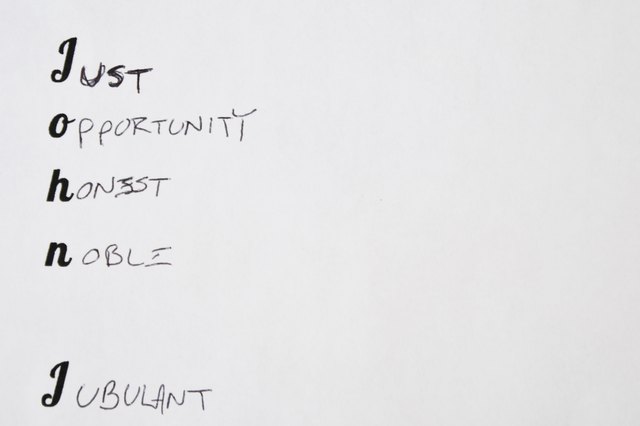 Just
opportunity
honest
noble
Jubulant